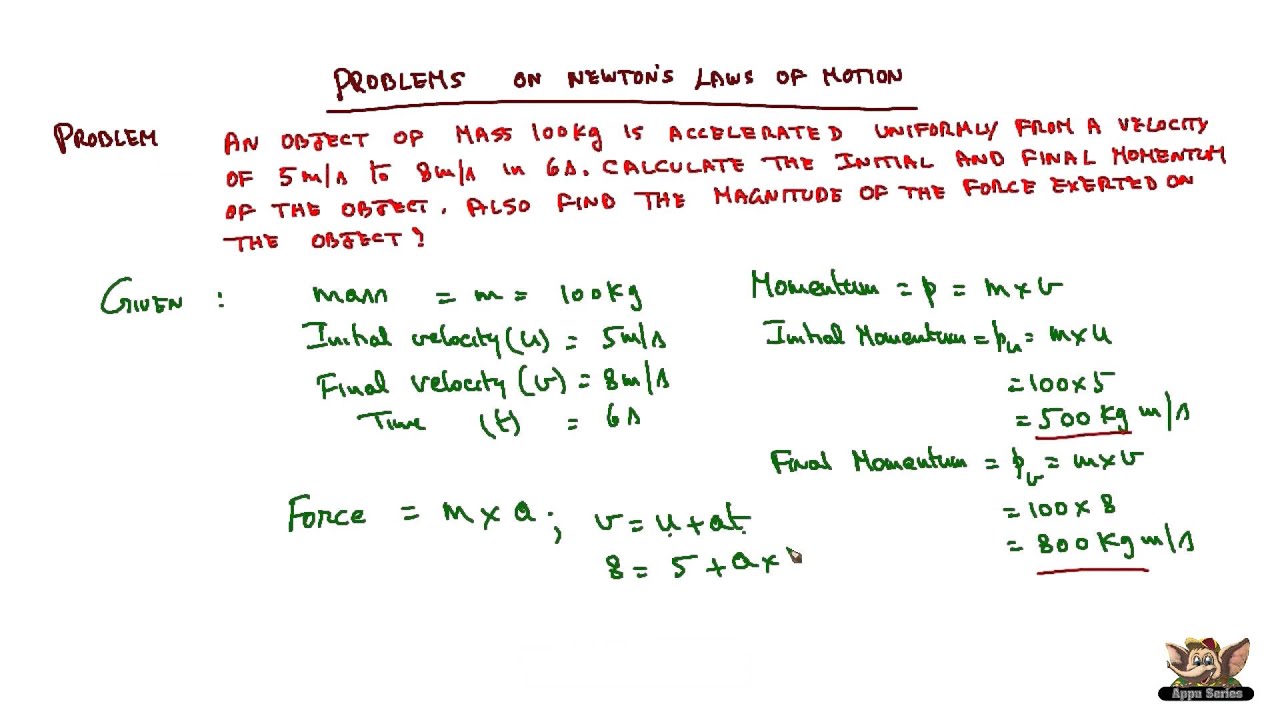 PROBLEMS ON NEWTON'S LAWS OF MOTION
PROBLEM AN OBJECT OF MASS 100Kg IS ACCELERATED UNIFORMLY FROM A VELOCITY
OF 5m/s to 8m/s in 6s. CALCULATE THE INITIAL AND FINAL MOMENTUM
OF THE OBJECT. ALSO FIND THE MAGNITUDE OF THE FORCE EXERTED ON
THE OBJECT?
GIVEN : mass = m = 100kg
Initial velocity (u) = 5m/s
Final velocity (v) = 8m/s
Time (t) = 6s
Momentum = p = m×v
Initial Momentum = pu = m×u
= 100×5
= 500 Kg m/s
Final Momentum = pv = m×v
= 100×8
= 800 Kg m/s
Force = m×a ; v = u+at
8 = 5+a×
Appu Series